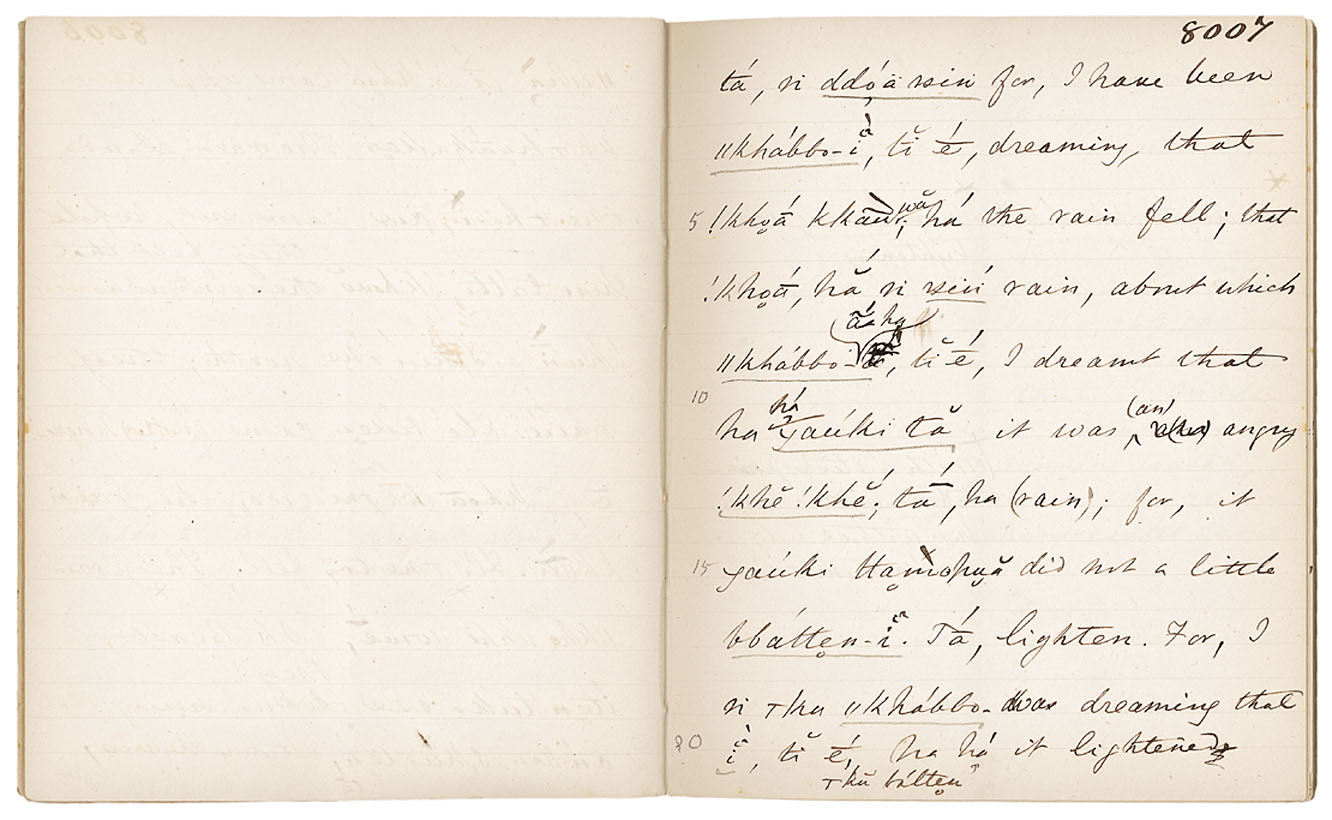 8007
tá, n ddóä ssin for, I have been
ǁkhábbo-ĭ, tĭ é̄, dreaming, that
5 !khọá kkaū; wă há the rain fell; that
!khọá, hắ n ssin rain, about which
ā́ ha
ǁkhábbo-, tĭ é̄, I dreamt that
10 há (an)
ha yaúki tă it was angry
!khĕ !khĕ; tā́, ha (rain); for, it
15 yaúki did not a little
bbáttẹn-ĭ. Tá, lighten. For, I
n ⊤ku ǁkhábbo- was dreaming that
20 ĭ, tĭ é̄, ha há it lightened
⊤kŭ báltẹn